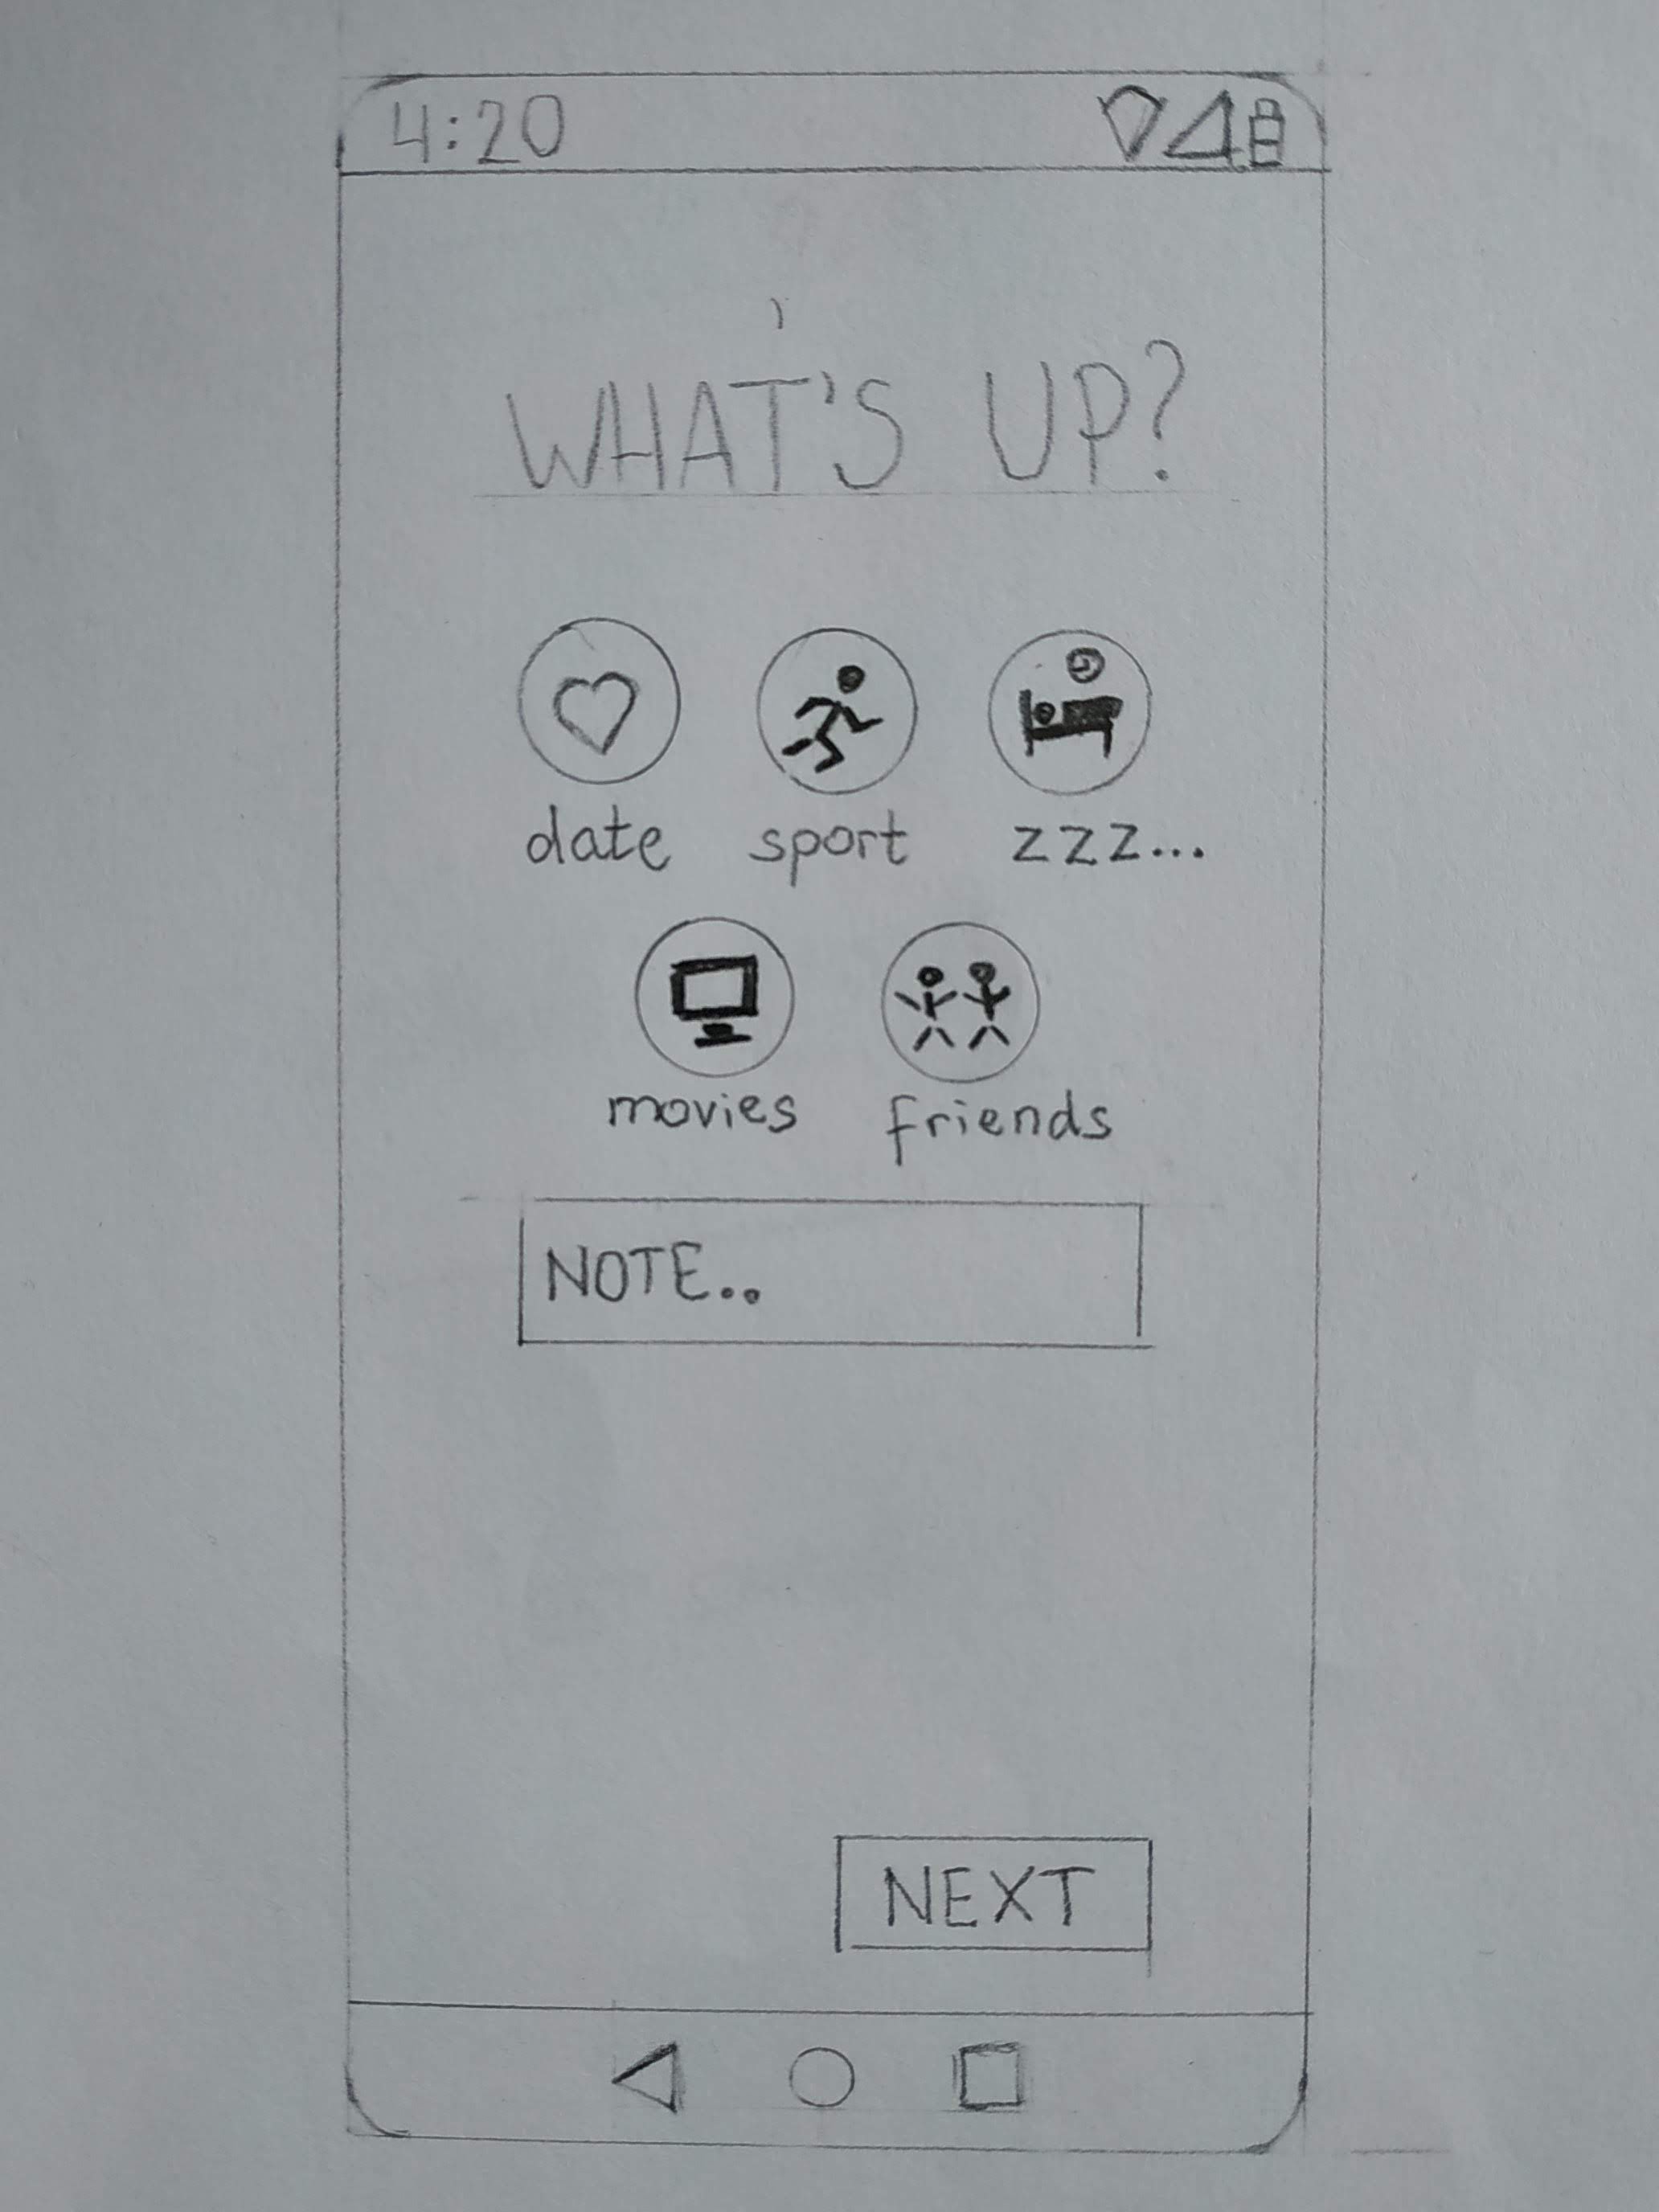 4:20
WHAT'S UP?
date sport zzz...
movies friends
NOTE..
NEXT